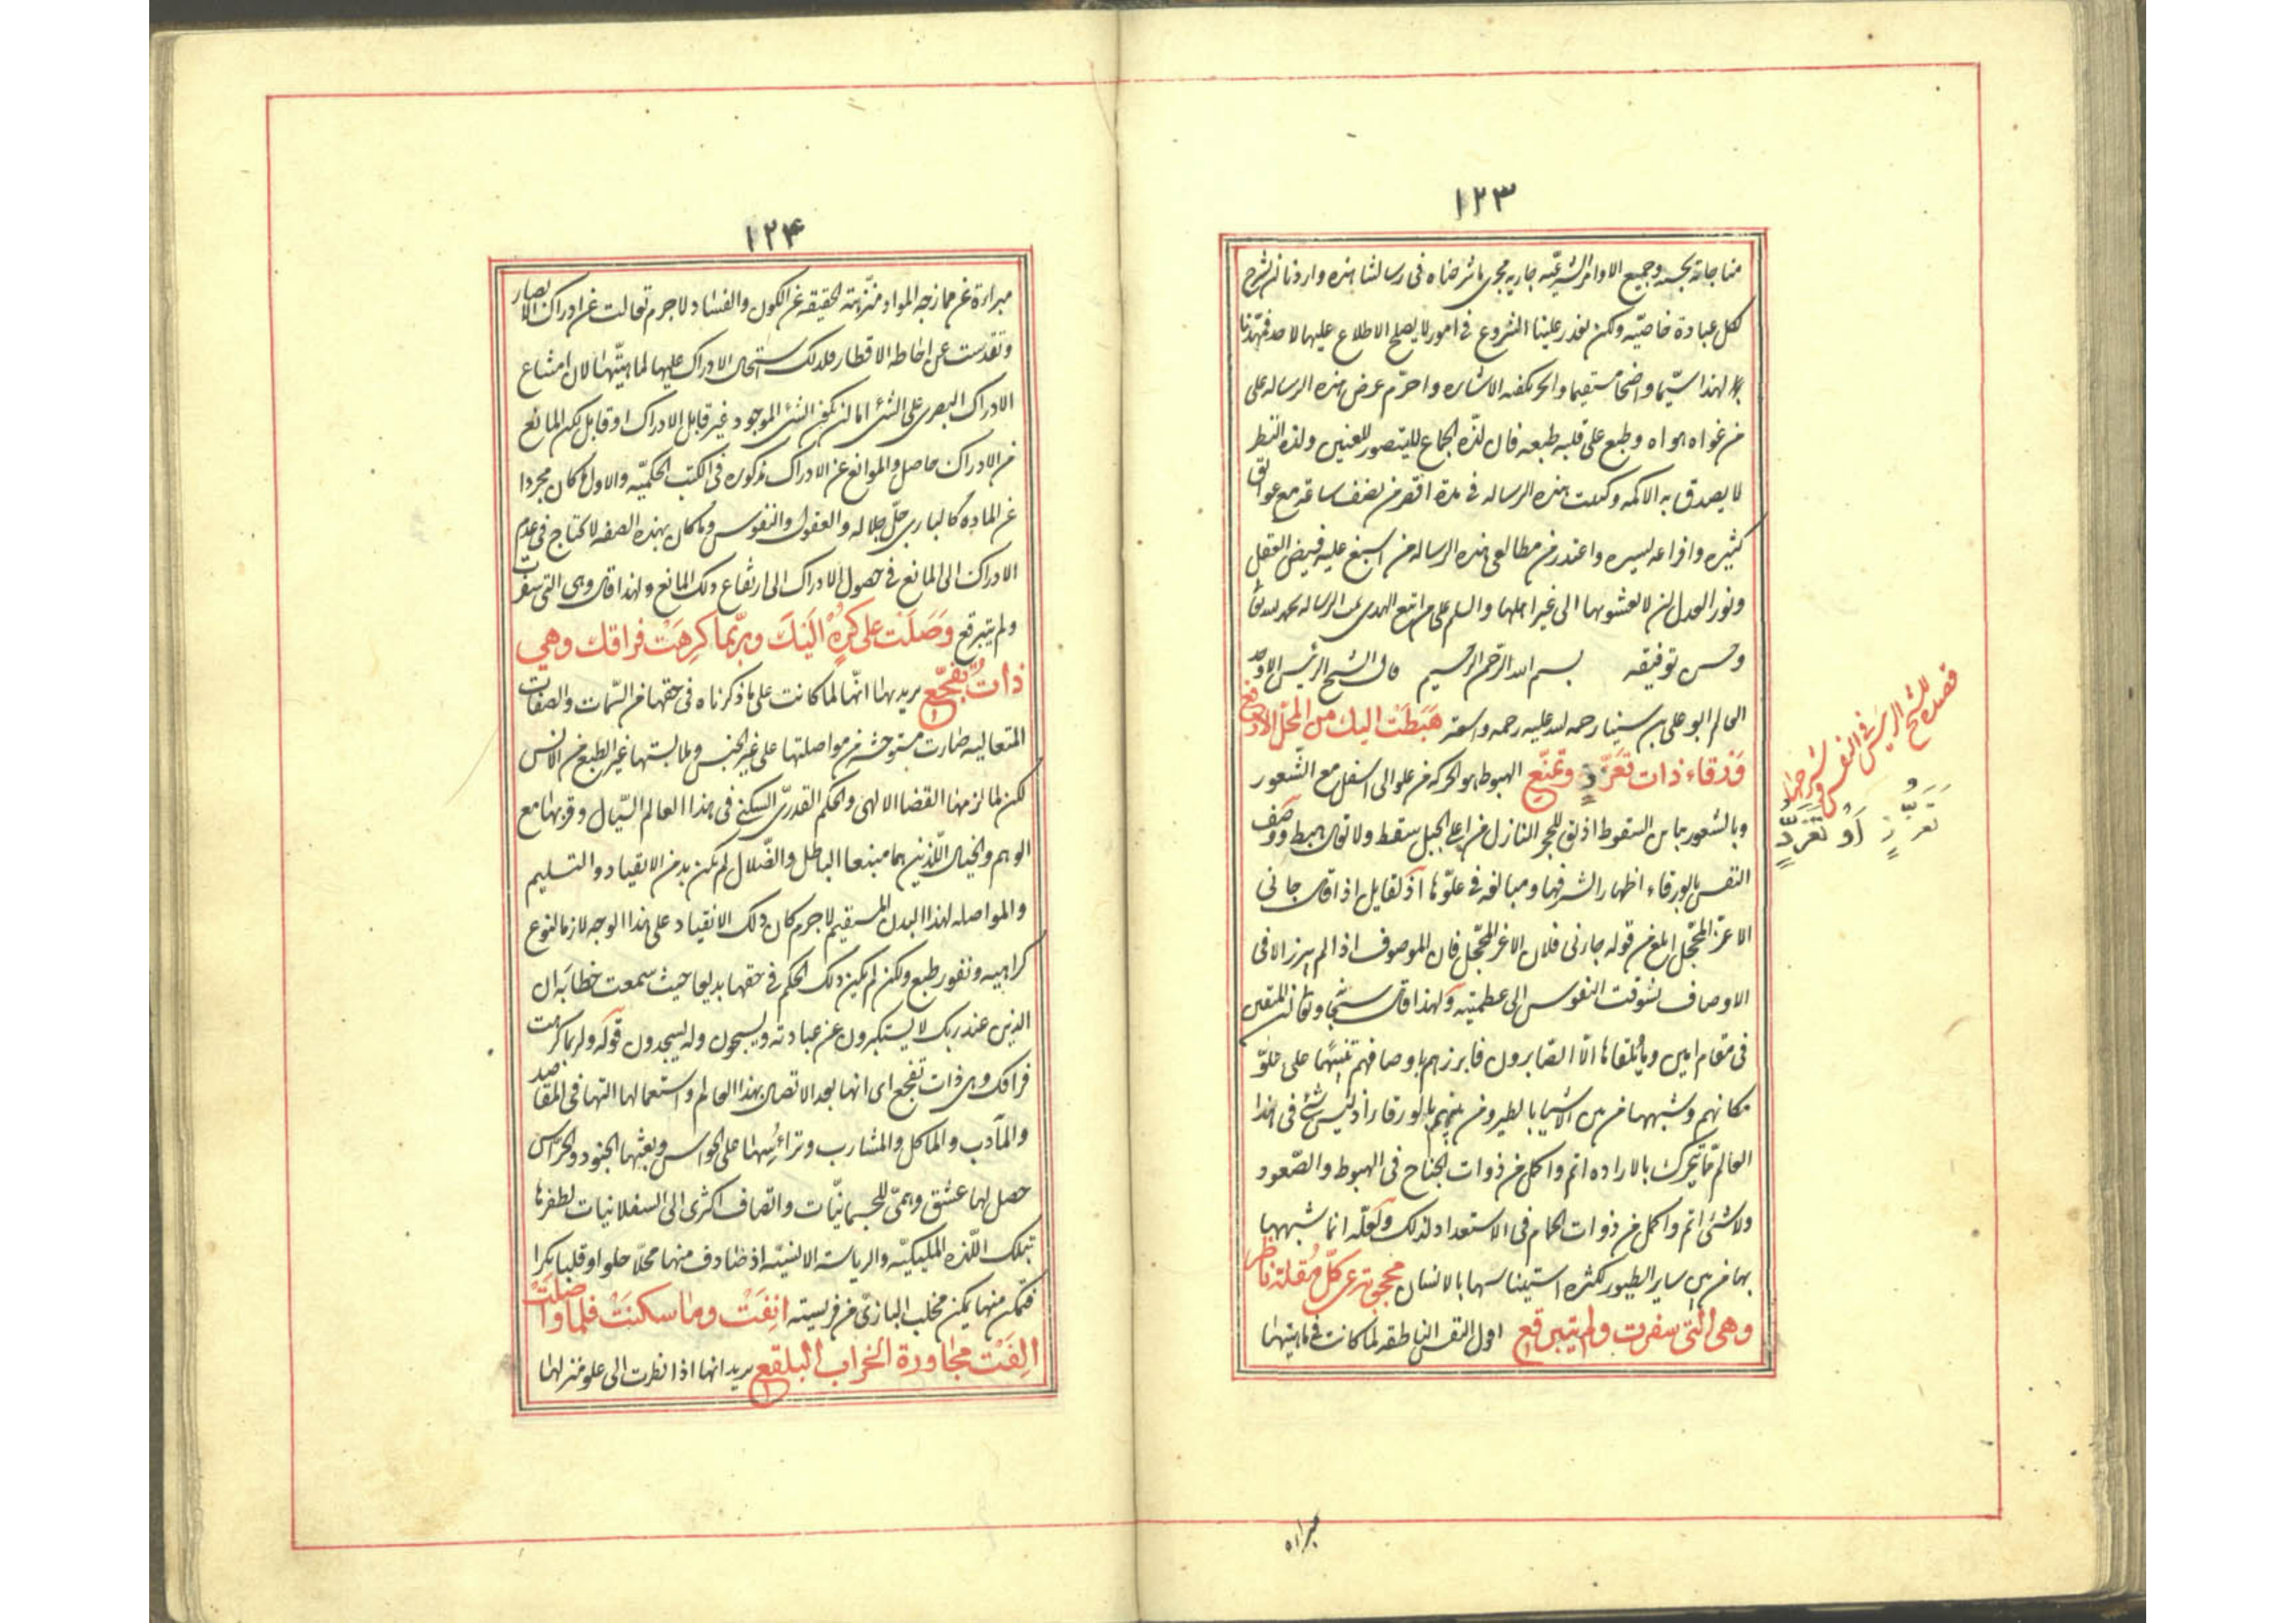 ١٢٣
مناجاته بجسده وجميع الاوامر الشرعيّه جاريه مجرى ما شرحناه فى رسالتنا هذه واردنا ان نشرح
لكل عبادة خاصّيّه ولكن تعذر علينا الشروع فى امور لا يصلح الاطلاع عليها لاحد فمهّدنا
لهذا سيّما واضحا مستقيما والحر يكفيه الاشاره واحرّم عرض هذه الرساله على
من غواه هواه وطبع على قلبه طبعه فان لذّه الجماع لا يتصور للعنين ولذه النظر
لا يصدق به الاكمه وكتبت هذه الرساله فى مدة اقصر من نصف ساعة مع عوايق
كثيره وافراغه يسيره واعتذر من مطالعى هذه الرساله من اسبغ عليه فيض العقل
ونور العدل ان لا يعشو بها الى غير اهلها والسلم على من اتبع الهدى تمت الرساله بحمد لله تعا
وحسن توفيقه بسم الله الرّحمن الرّحيم قال الشيخ الرئيس الاوحد
العالم ابو على بن سينا رحمه لله عليه رحمه واسعة هَبَطَت اليك من المحَلّ الارفع
وَرقاء ذات تَعَزّزٍ وتمنّع الهبوط هو الحركه من علو الى اسفل مع الشّعور
وبالشعور يباين السقوط اذ يق للحجر النازل من اعلى الجبل سقط ولا تقال هبط ووصف
النفس بالورقاء اظهار الشرفها ومبالغه فى علوّها اذ لقايل اذا قال جائنى
الاعزّ المحجّل ابلغ من قوله جاءنى فلان الاغر المحجّل فان الموصوف اذا لم يبرز الا فى
الاوصاف تشوقت النفوس الى عظمته ولهذا قال سبحا وتعا ان المتقين
فى مقام امين وما يلقاها الّا الصّابرون فابرزهم باوصافهم تنبيهًا على علوّ
مكانهم وشبهها من بين الاشيا بالطير ومن بينهم بالورقاء اذ ليس شئ فى هذا
العالم ممّا يتحرك بالاراده اتم واكمل من ذوات الجناح فى الهبوط والصّعود
ولا شئ اتم واكمل من ذوات الحمام فى الاستعداد لذلك ولعلّه انما شبهها
بها من بين ساير الطيور لكثره استيناسها بالانسان محجوبة عن كلّ مُقلة ناظر
وهى التّى سفرت ولم تتبرقع اول النفس الناطقه لما كانت فى ماهيتها
قصيدة للشيخ الرئيس فى النفس وشرحها
تَعَزُّزٍ أو تَفَرُّدٍ
مبراه
١٢۴
مبراءة عن ممازجه المواد منزّهة لحقيقه عن الكون والفساد لاجرم تعالت عن ادراك الابصار
وتقدست عن احاطه الاقطار فلذلك استحال الادراك عليها لماهيّتها لان امتناع
الادراك البصرى على الشئ اما لن يكون الشئ الموجود غير قابل الادراك او قابل لكن المانع
من الادراك حاصل والموانع عن الادراك مذكوره فى الكتب الحكميّه والاول ما كان مجردا
عن الماده كالبارى جلّ جلاله والعقول والنفوس وما كان بهذه الصفه لا يحتاج فى عدم
الادراك الى المانع فى حصول الادراك الى ارتفاع ذلك المانع ولهذا قال وهى التى سفرت
ولم تتبرقع وَصَلَت على كُرهٍ اليَكَ وربّما كَرِهَت فراقك وهي
ذاتُ تَفَجّع يريد بهذا انّها لما كانت على ما ذكرناه فى حقها من السّمات والصفات
المتعاليه صارت مستوحشه من مواصلتها على غير الجنس وملابستها غير الطبع من الانس
لكن لما لزمها القضا الالهى والحكم القدرىّ السكنى فى هذا العالم السّيال وقربها مع
الوهم والخيال اللّذين هما منبعا الباطل والضّلال لم يكن بد من الانقياد والتسليم
والمواصله لهذا البدن السقيم لاجرم كان ذلك الانقياد على هذا الوجه لازما لنوع
كراهيه ونفور طبع ولكن لم يكن ذلك الحكم فى حقها بديعا حيث سمعت خطابَه ان
الذين عند ربك لا يستكبرون عن عبادته ويسبحون وله يسجدون قوله ولربما كرهت
فراقك وهى ذات تفجع اى انها بعد الاتصال بهذا العالم واستعمالها التها فى المقاصد
والمآدب والماكل والمشارب وتراءسها على الحواس وبعثها الجنود والحرّاس
حصل لها عشق وهمىّ للجسمانيّات واتّصاف اكثرى الى السفلانيات لظفرها
بتلك اللّذه المليكيّه والرياسة الانسيّه اذ صادف منها محلّا خلوا وقلبا بكرا
فتمكن منها تمكن مخلب البازىّ من فريسته انِفَتْ وما سكنَتْ فلما واصَلَتْ
الِفَتْ مجاورة الخراب البلقع يريد انها اذا نظرت الى علو منزلها